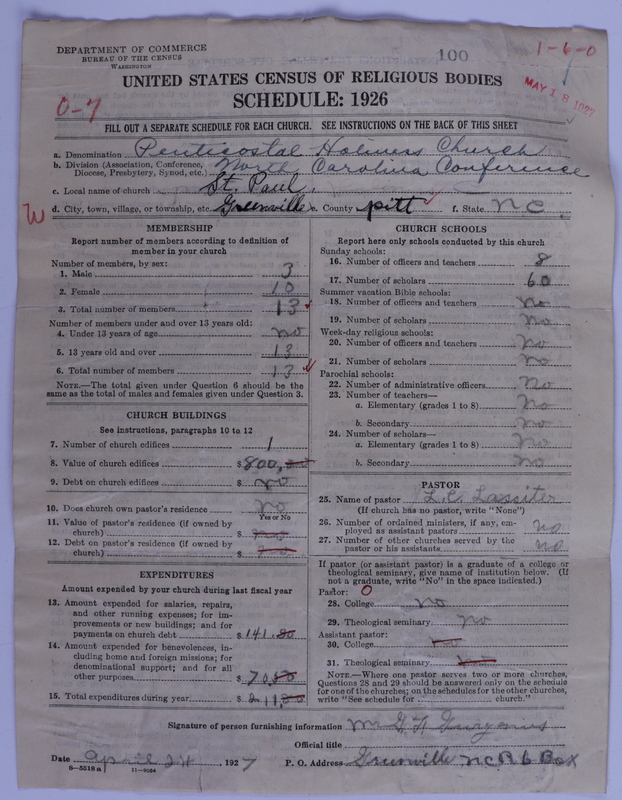 DEPARTMENT OF COMMERCE
BUREAU OF THE CENSUS
WASHINGTON
100
1-6-0
MAY 18 1927
0-7
UNITED STATES CENSUS OF RELIGIOUS BODIES
SCHEDULE: 1926
FILL OUT A SEPARATE SCHEDULE FOR EACH CHURCH. SEE INSTRUCTIONS ON THE BACK OF THIS SHEET
a. Denomination Penticostal Holiness Church
b. Division (Association, Conference, Diocese, Presbytery, Synod, etc.) North Carolina Conference
c. Local name of church St. Paul.
W d. City, town, village, or township, etc. Greenville e. County pitt f. State N C.
MEMBERSHIP
Report number of members according to definition of
member in your church
Number of members, by sex:
1. Male 3
2. Female 10
3. Total number of members 13
Number of members under and over 13 years old:
4. Under 13 years of age no
5. 13 years old and over 13
6. Total number of members 13
NOTE.—The total given under Question 6 should be the
same as the total of males and females given under Question 3.
CHURCH BUILDINGS
See instructions, paragraphs 10 to 12
7. Number of church edifices 1
8. Value of church edifices $800,
9. Debt on church edifices $ no
10. Does church own pastor's residence no
Yes or No
11. Value of pastor's residence (if owned by
church) $
12. Debt on pastor's residence (if owned by
church) $
EXPENDITURES
Amount expended by your church during last fiscal year
13. Amount expended for salaries, repairs,
and other running expenses; for im-
provements or new buildings; and for
payments on church debt $ 141.80
14. Amount expended for benevolences, in-
cluding home and foreign missions; for
denominational support; and for all
other purposes $ 70
15. Total expenditures during year $ 211
CHURCH SCHOOLS
Report here only schools conducted by this church
Sunday schools:
16. Number of officers and teachers 8
17. Number of scholars 60
Summer vacation Bible schools:
18. Number of officers and teachers no
19. Number of scholars No
Week-day religious schools:
20. Number of officers and teachers No
21. Number of scholars No
Parochial schools:
22. Number of administrative officers No
23. Number of teachers—
a. Elementary (grades 1 to 8) No
b. Secondary no
24. Number of scholars—
a. Elementary (grades 1 to 8) No
b. Secondary no
PASTOR
25. Name of pastor L.C. Lassiter
(If church has no pastor, write "None")
26. Number of ordained ministers, if any, em-
ployed as assistant pastors no
27. Number of other churches served by the
pastor or his assistants no
If pastor (or assistant pastor) is a graduate of a college or
theological seminary, give name of institution below. (If
not a graduate, write "No" in the space indicated.)
Pastor: 0
28. College no
29. Theological seminary no
Assistant pastor:
30. College no
31. Theological seminary
NOTE.—Where one pastor serves two or more churches,
Questions 28 and 29 should be answered only on the schedule
for one of the churches; on the schedules for the other churches,
write "See schedule for church."
Signature of person furnishing information
Official title
Date April 24, 1927 P. O. Address Greenville N.C. R 6 Box
8-5518 a 11-9084